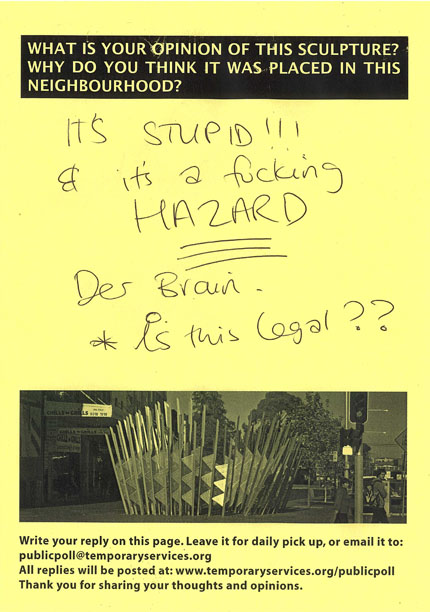 WHAT IS YOUR OPINION OF THIS SCULPTURE?
WHY DO YOU THINK IT WAS PLACED IN THIS
NEIGHBOURHOOD?
IT'S STUPID!!!
& it's a fucking
HAZARD
Der Brain.
* is this legal??
Write your reply on this page. Leave it for daily pick up, or email it to:
publicpoll@temporaryservices.org
All replies will be posted at: www.temporaryservices.org/publicpoll
Thank you for sharing your thoughts and opinions.